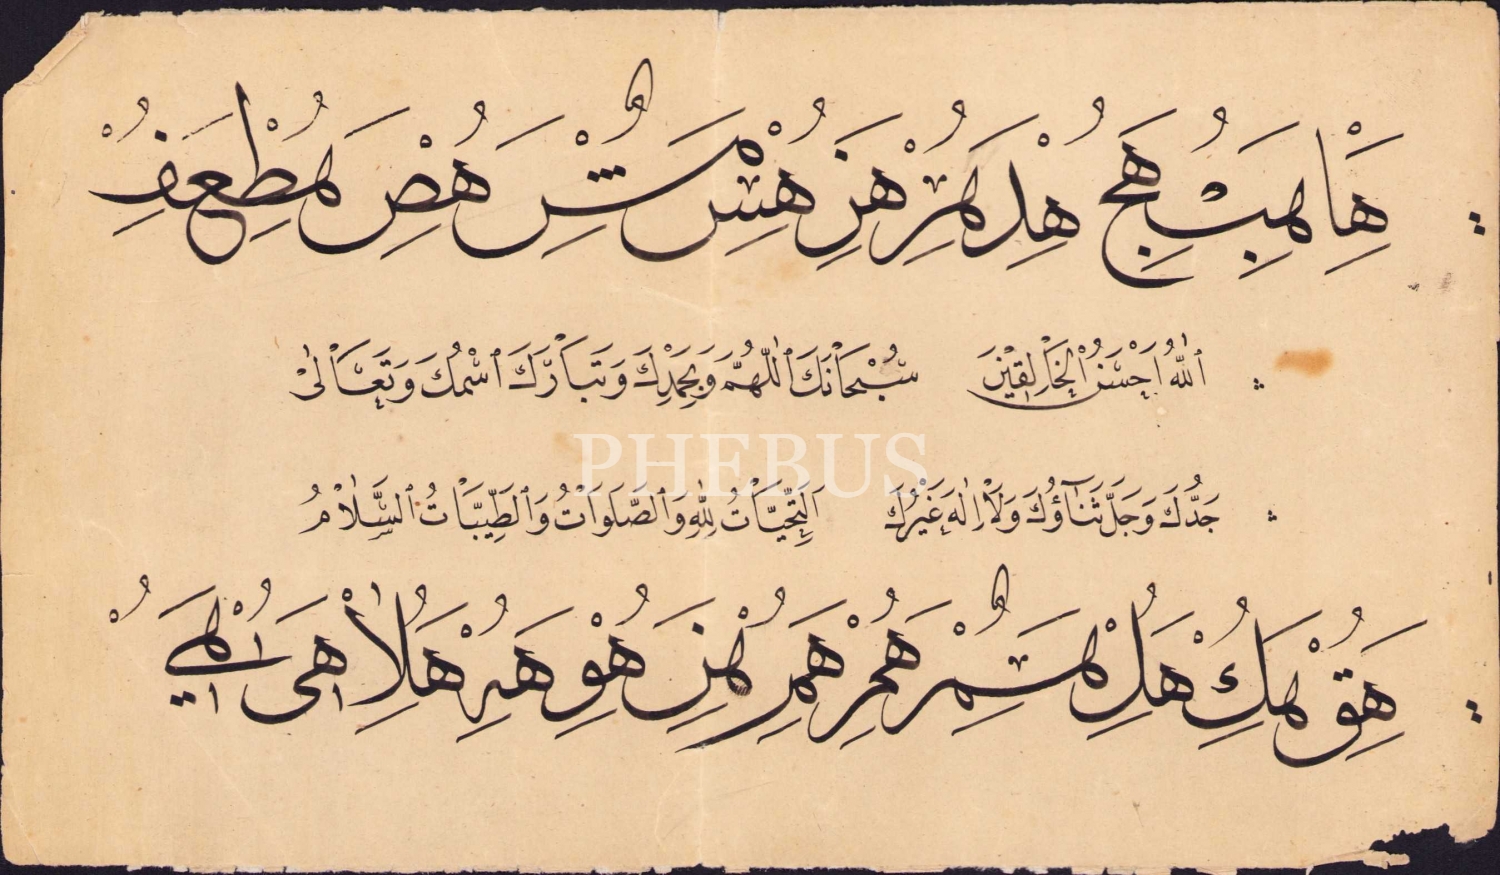 هَا هَبْ هَجْ هُدْ هَرْ هَزْ هُسْ هَشْ هُصْ هَطْ هَعْ هَفْ
اَللّٰهُ اَحْسَنُ الْخَالِقِيْنَ سُبْحَانَكَ اللّٰهُمَّ وَبِحَمْدِكَ وَتَبَارَكَ اسْمُكَ وَتَعَالٰى
PHEBUS
جَدُّكَ وَجَلَّ ثَنَاؤُكَ وَلَا اِلٰهَ غَيْرُكَ اَلتَّحِيَّاتُ لِلّٰهِ وَالصَّلَوَاتُ وَالطَّيِّبَاتُ السَّلَامُ
هَقْ هَكْ هَلْ هَمْ هَمْ هَمْ هَنْ هُوْ هَهْ هَلَا هَى